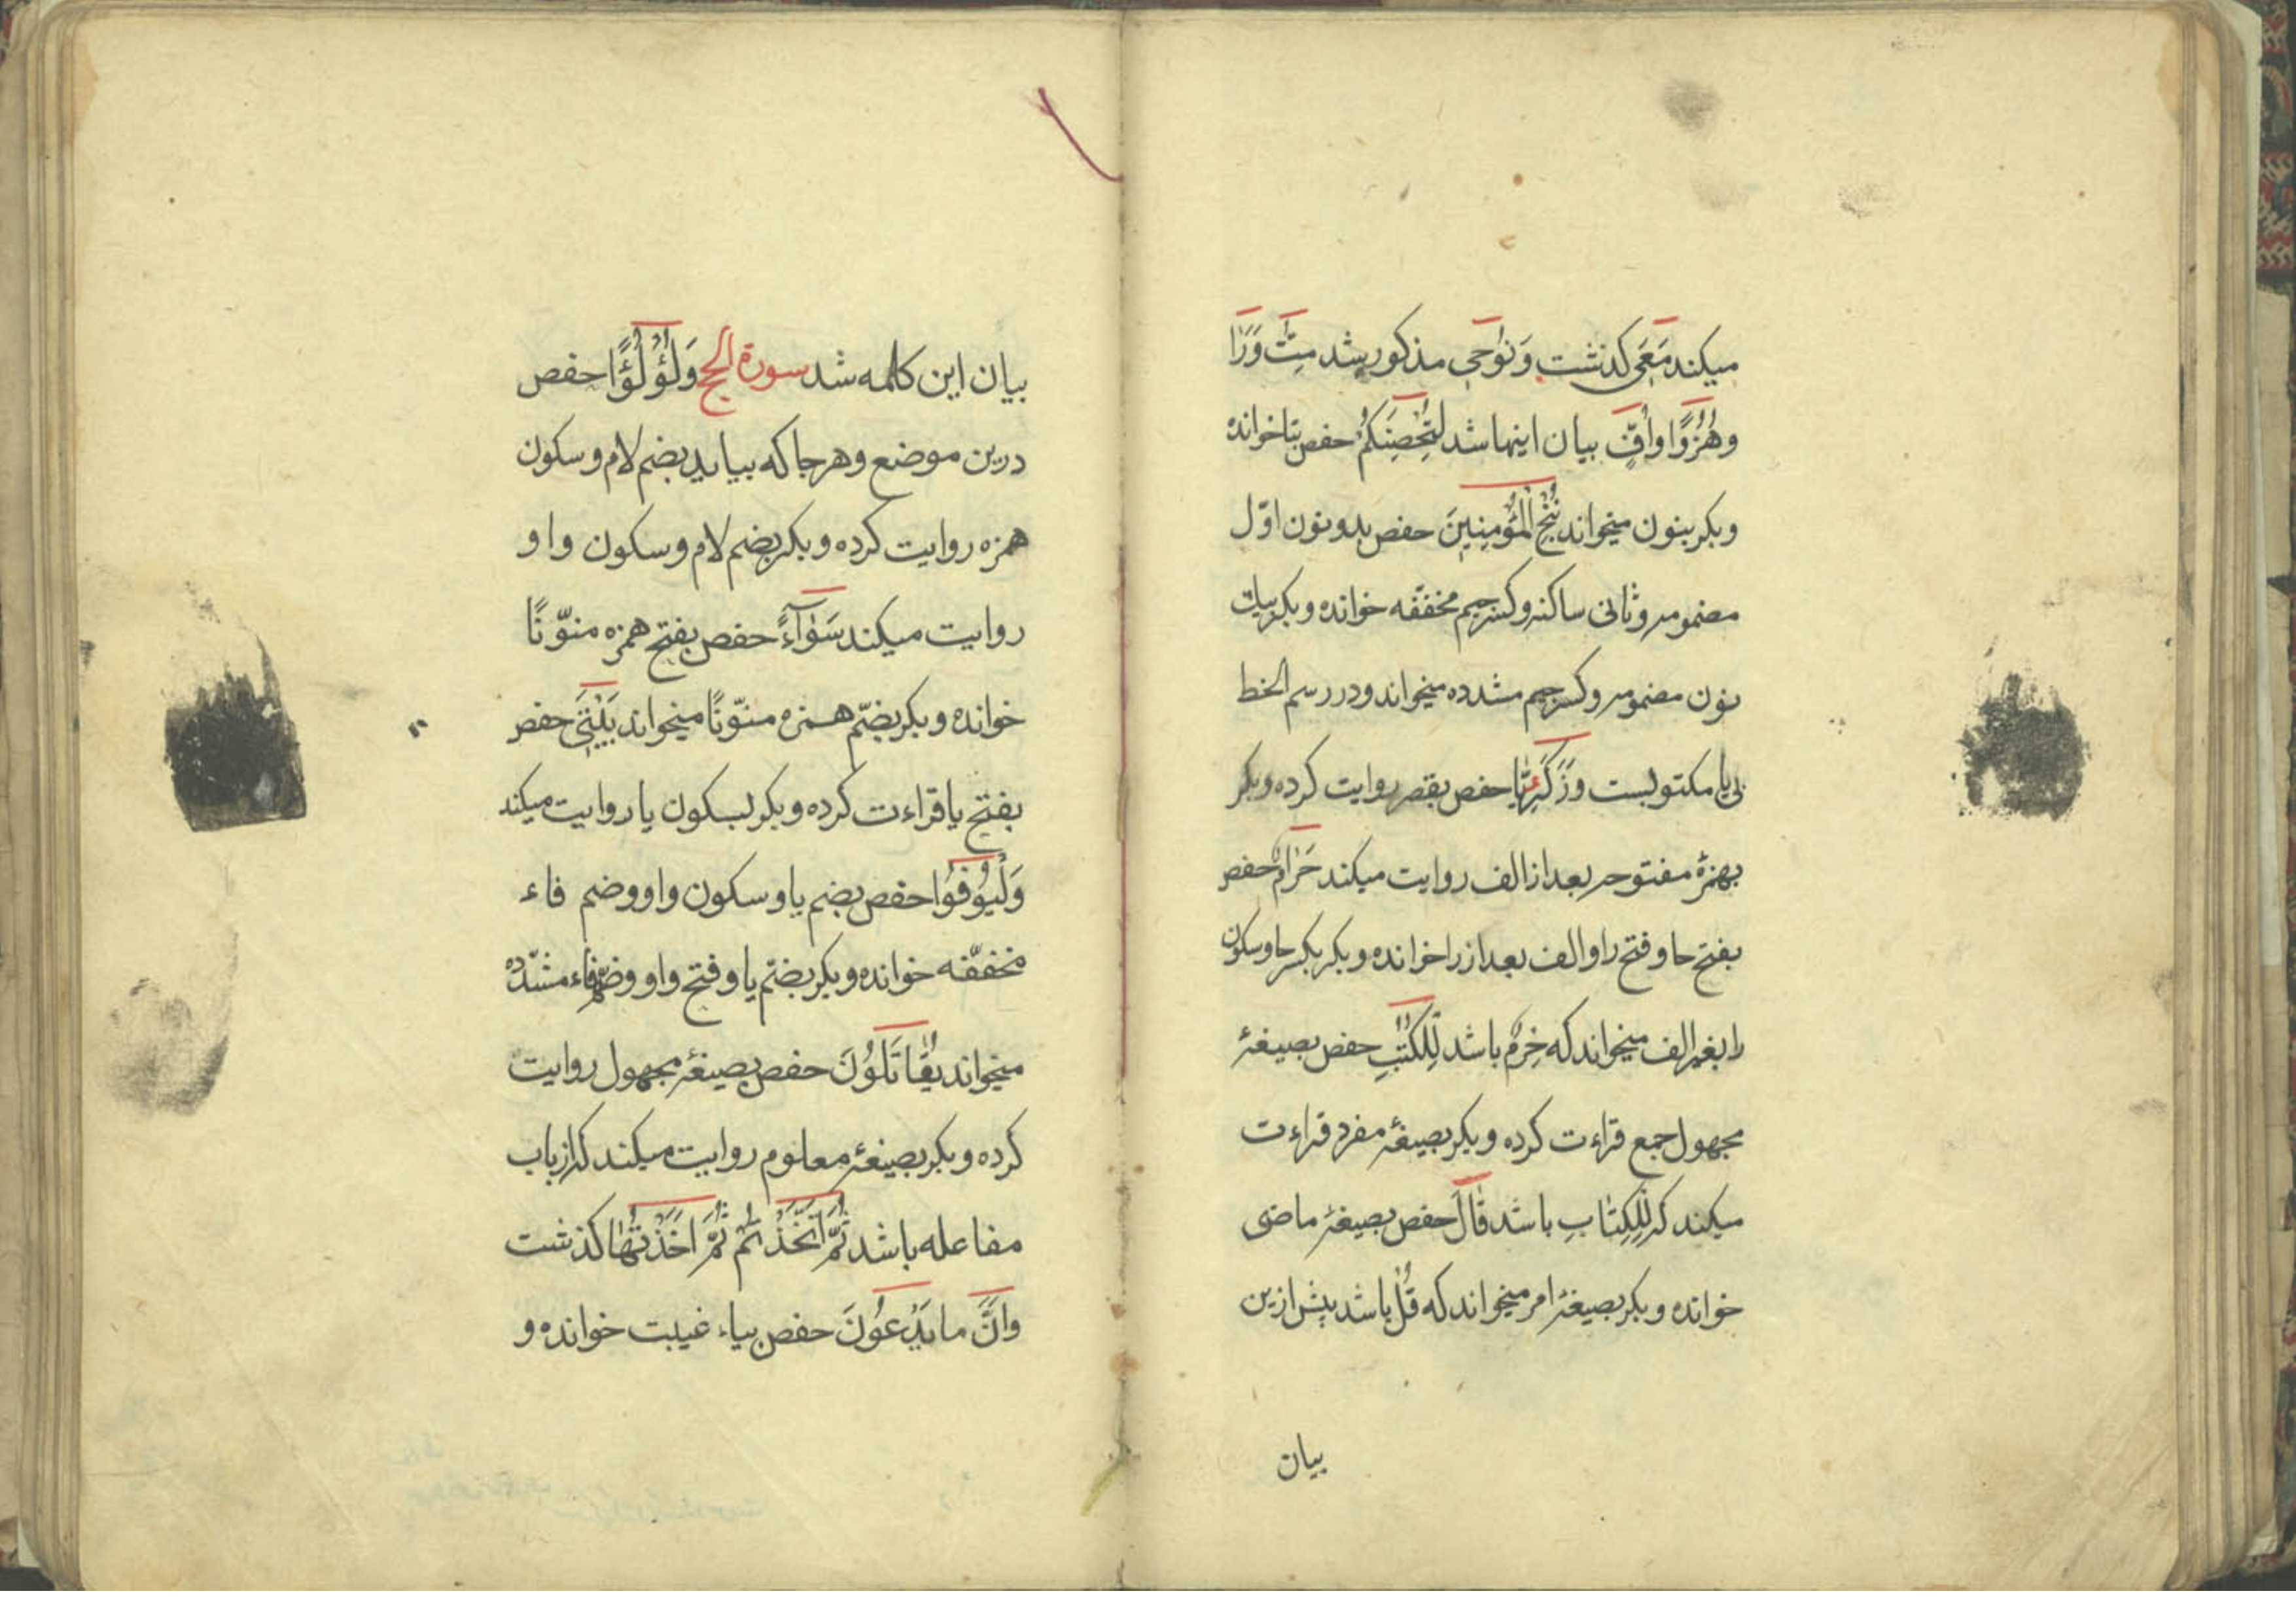 میکند مَعِیَ کذشت وَنُوحِی مذکور شد مِتَّ وَرَاٰ
وهُزُوًا واُفٍّ بیان اینها شد لِتُحْصِنَکُمْ حفص بتا خوانده
وبکر بنون میخواند نُنْجِ الْمُؤْمِنِینَ حفص بدو نون اوّل
مضمومه وثانی ساکنه وکسر جیم مخففّه خوانده وبکر بیك
نون مضمومه وکسر جیم مشدده میخواند ودر رسم الخط
بی یا مکتوبست وَزَکَرِیَّا حفص بقصر روایت کرده وبکر
بهمزهٔ مفتوحه بعد از الف روایت میکند حَرٰامٌ حفص
بفتح حا وفتح را والف بعد از را خوانده وبکر بکسر حا وسکون
را بغیر الف میخواند که حِرْمٌ باشد لِلْکُتُبِ حفص بصیغهٔ
مجهول جمع قراءت کرده وبکر بصیغهٔ مفرد قراءت
میکند که لِلْکِتٰابِ باشد قٰالَ حفص بصیغهٔ ماضی
خوانده وبکر بصیغهٔ امر میخواند که قُلْ باشد پیش ازین
بیان
بیان این کلمه شد سورة الحج وَلُؤْلُؤًا حفص
درین موضع وهرجا که بیاید بضم لام وسکون
همزه روایت کرده وبکر بضم لام وسکون واو
روایت میکند سَوٰآءً حفص بفتح همزه منوّنًا
خوانده وبکر بضمّ همزه منوّنًا میخواند بَیْتِیَ حفص
بفتح یا قراءت کرده وبکر بسکون یا روایت میکند
وَلْیُوفُوا حفص بضم یا وسکون واو وضم فاء
مخففّه خوانده وبکر بضمّ یا وفتح واو وضمّ فاء مشدّده
میخواند یُقٰاتَلُونَ حفص بصیغهٔ مجهول روایت
کرده وبکر بصیغهٔ معلوم روایت میکند که از باب
مفاعله باشد ثُمَّ اتَّخَذْتُمْ ثُمَّ اَخَذْتُهٰا کذشت
وَاَنَّ مایَدْعُونَ حفص بیاء غیبت خوانده و